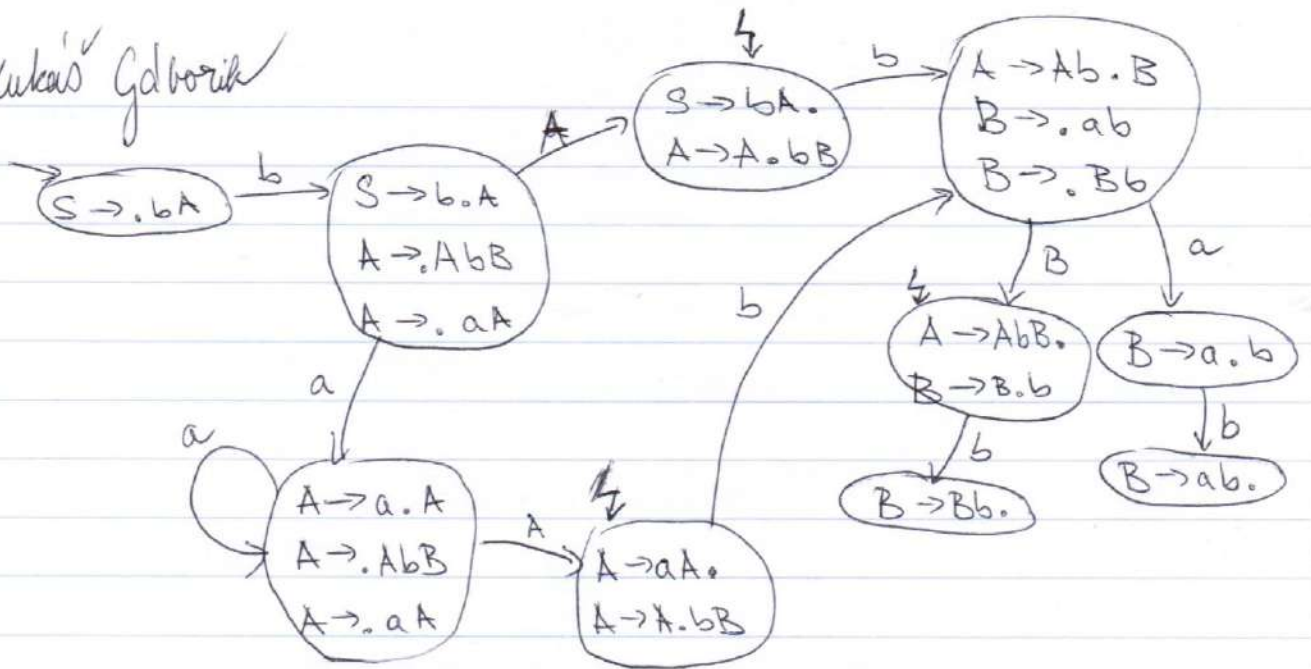 Lukáš Gáborik
S → . bA
b
S → b . A
A → . AbB
A → . aA
A
S → bA .
A → A . bB
b
A → Ab . B
B → . ab
B → . Bb
B
a
A → AbB .
B → B . b
b
B → Bb .
B → a . b
b
B → ab .
a
a
A → a . A
A → . AbB
A → . aA
A
A → aA .
A → A . bB
b